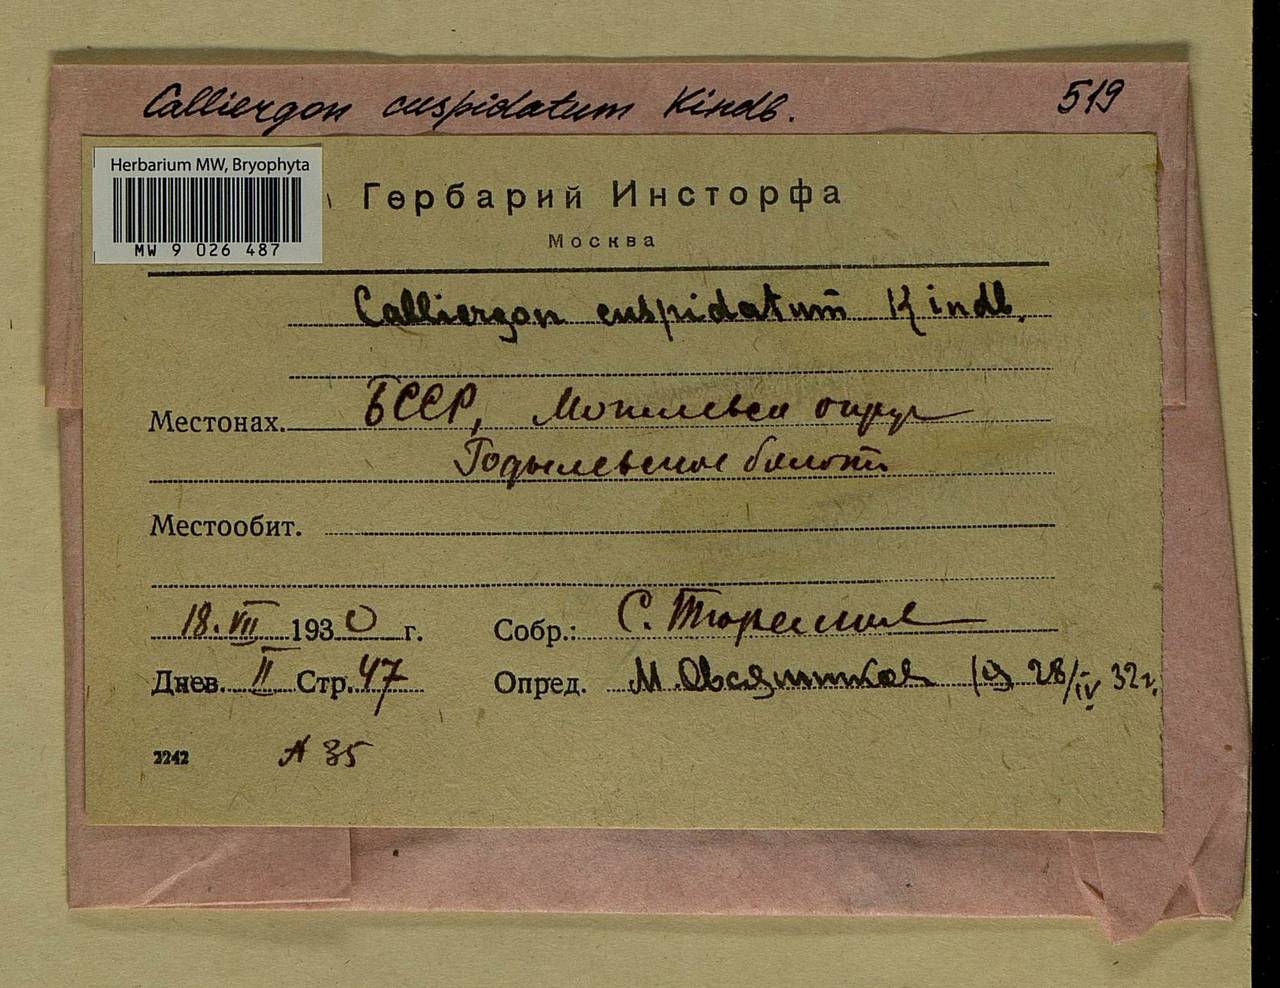 Calliergon cuspidatum Kindb. 519
Herbarium MW, Bryophyta
MW 9 026 487
Гербарий Инсторфа
Москва
Calliergon cuspidatum Kindb.
Местонах. БССР, округ
Годылевское болото
Местообит.
18.VII 1930 г. Собр.: С. Тюремнов
Днев. II Стр. 47 Опред. М. Овсянников 28/IV 32 г.
2242 А 35